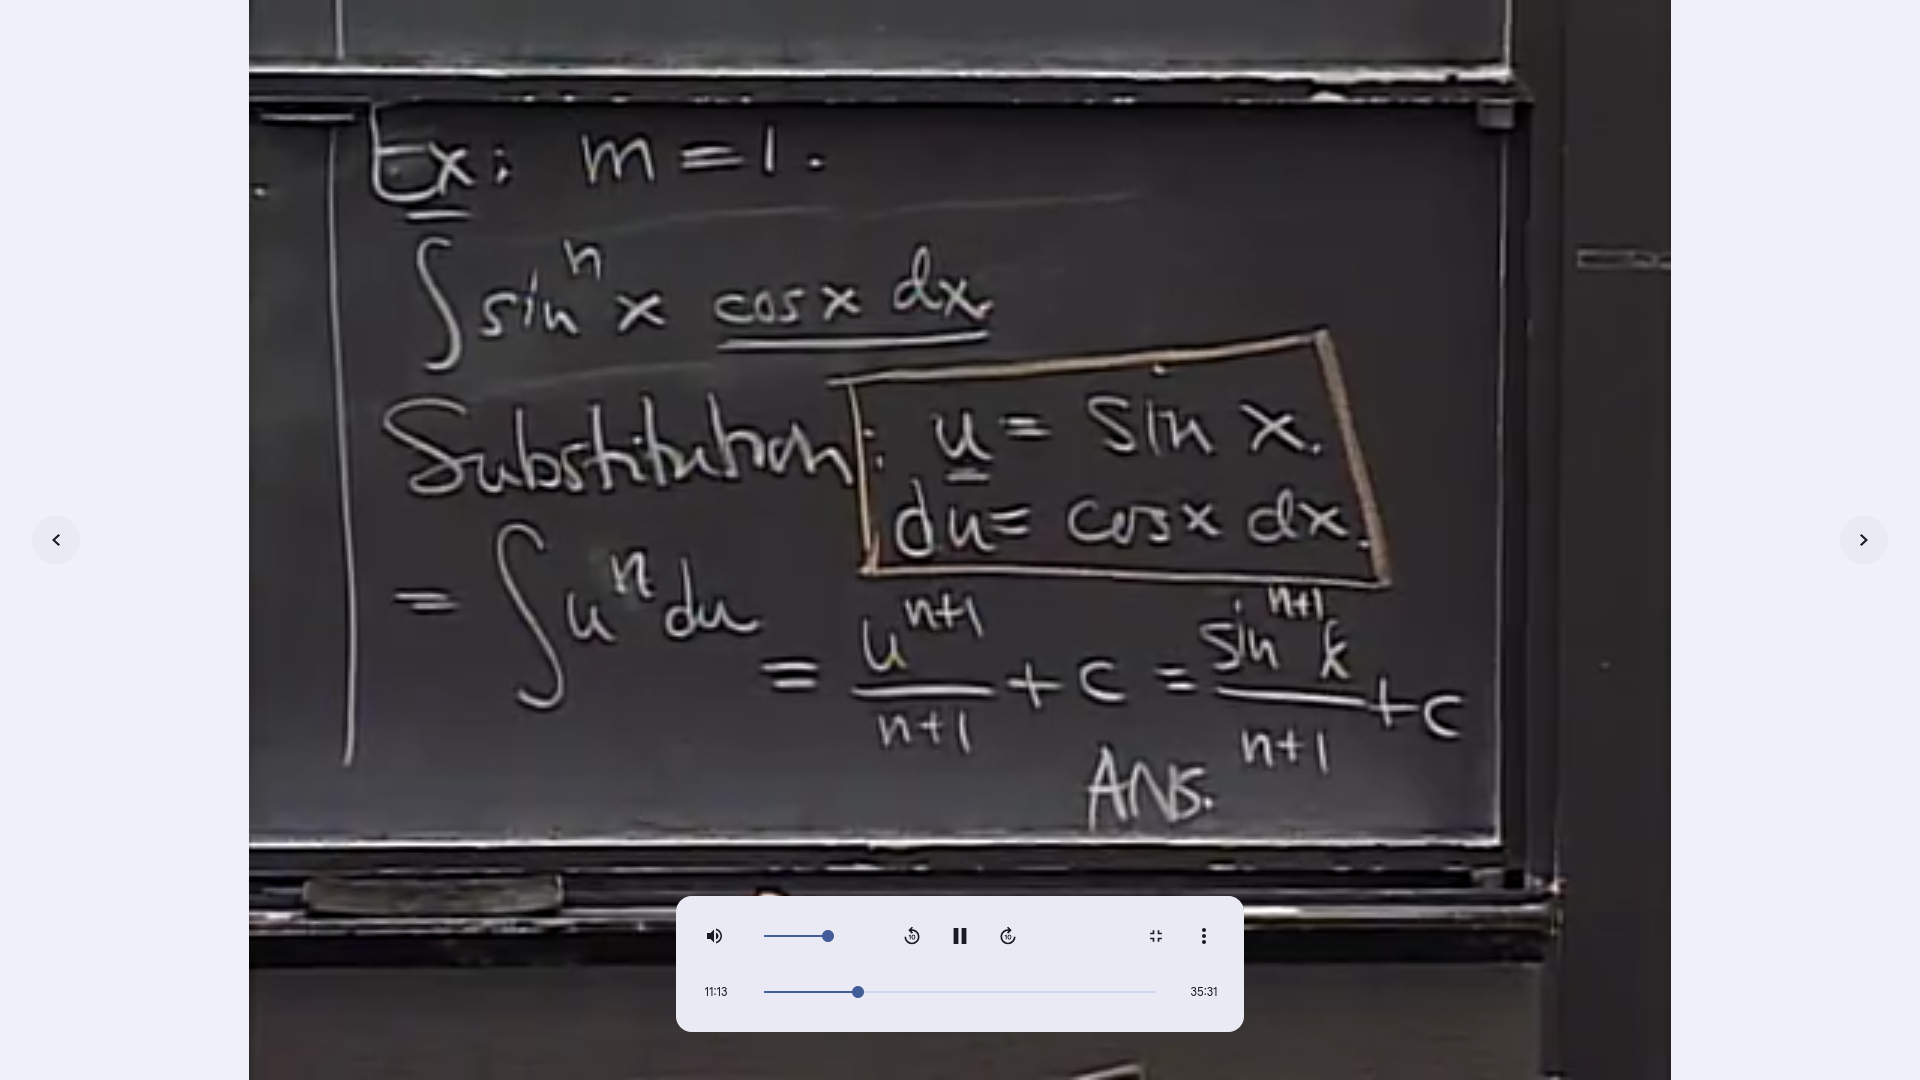 Ex: m = 1.
∫ sinⁿ x cos x dx.
Substitution: u = sin x.
du = cos x dx.
= ∫ uⁿ du = uⁿ⁺¹/n+1 + c = sinⁿ⁺¹ x/n+1 + c
ANS.
10 10
11:13 35:31